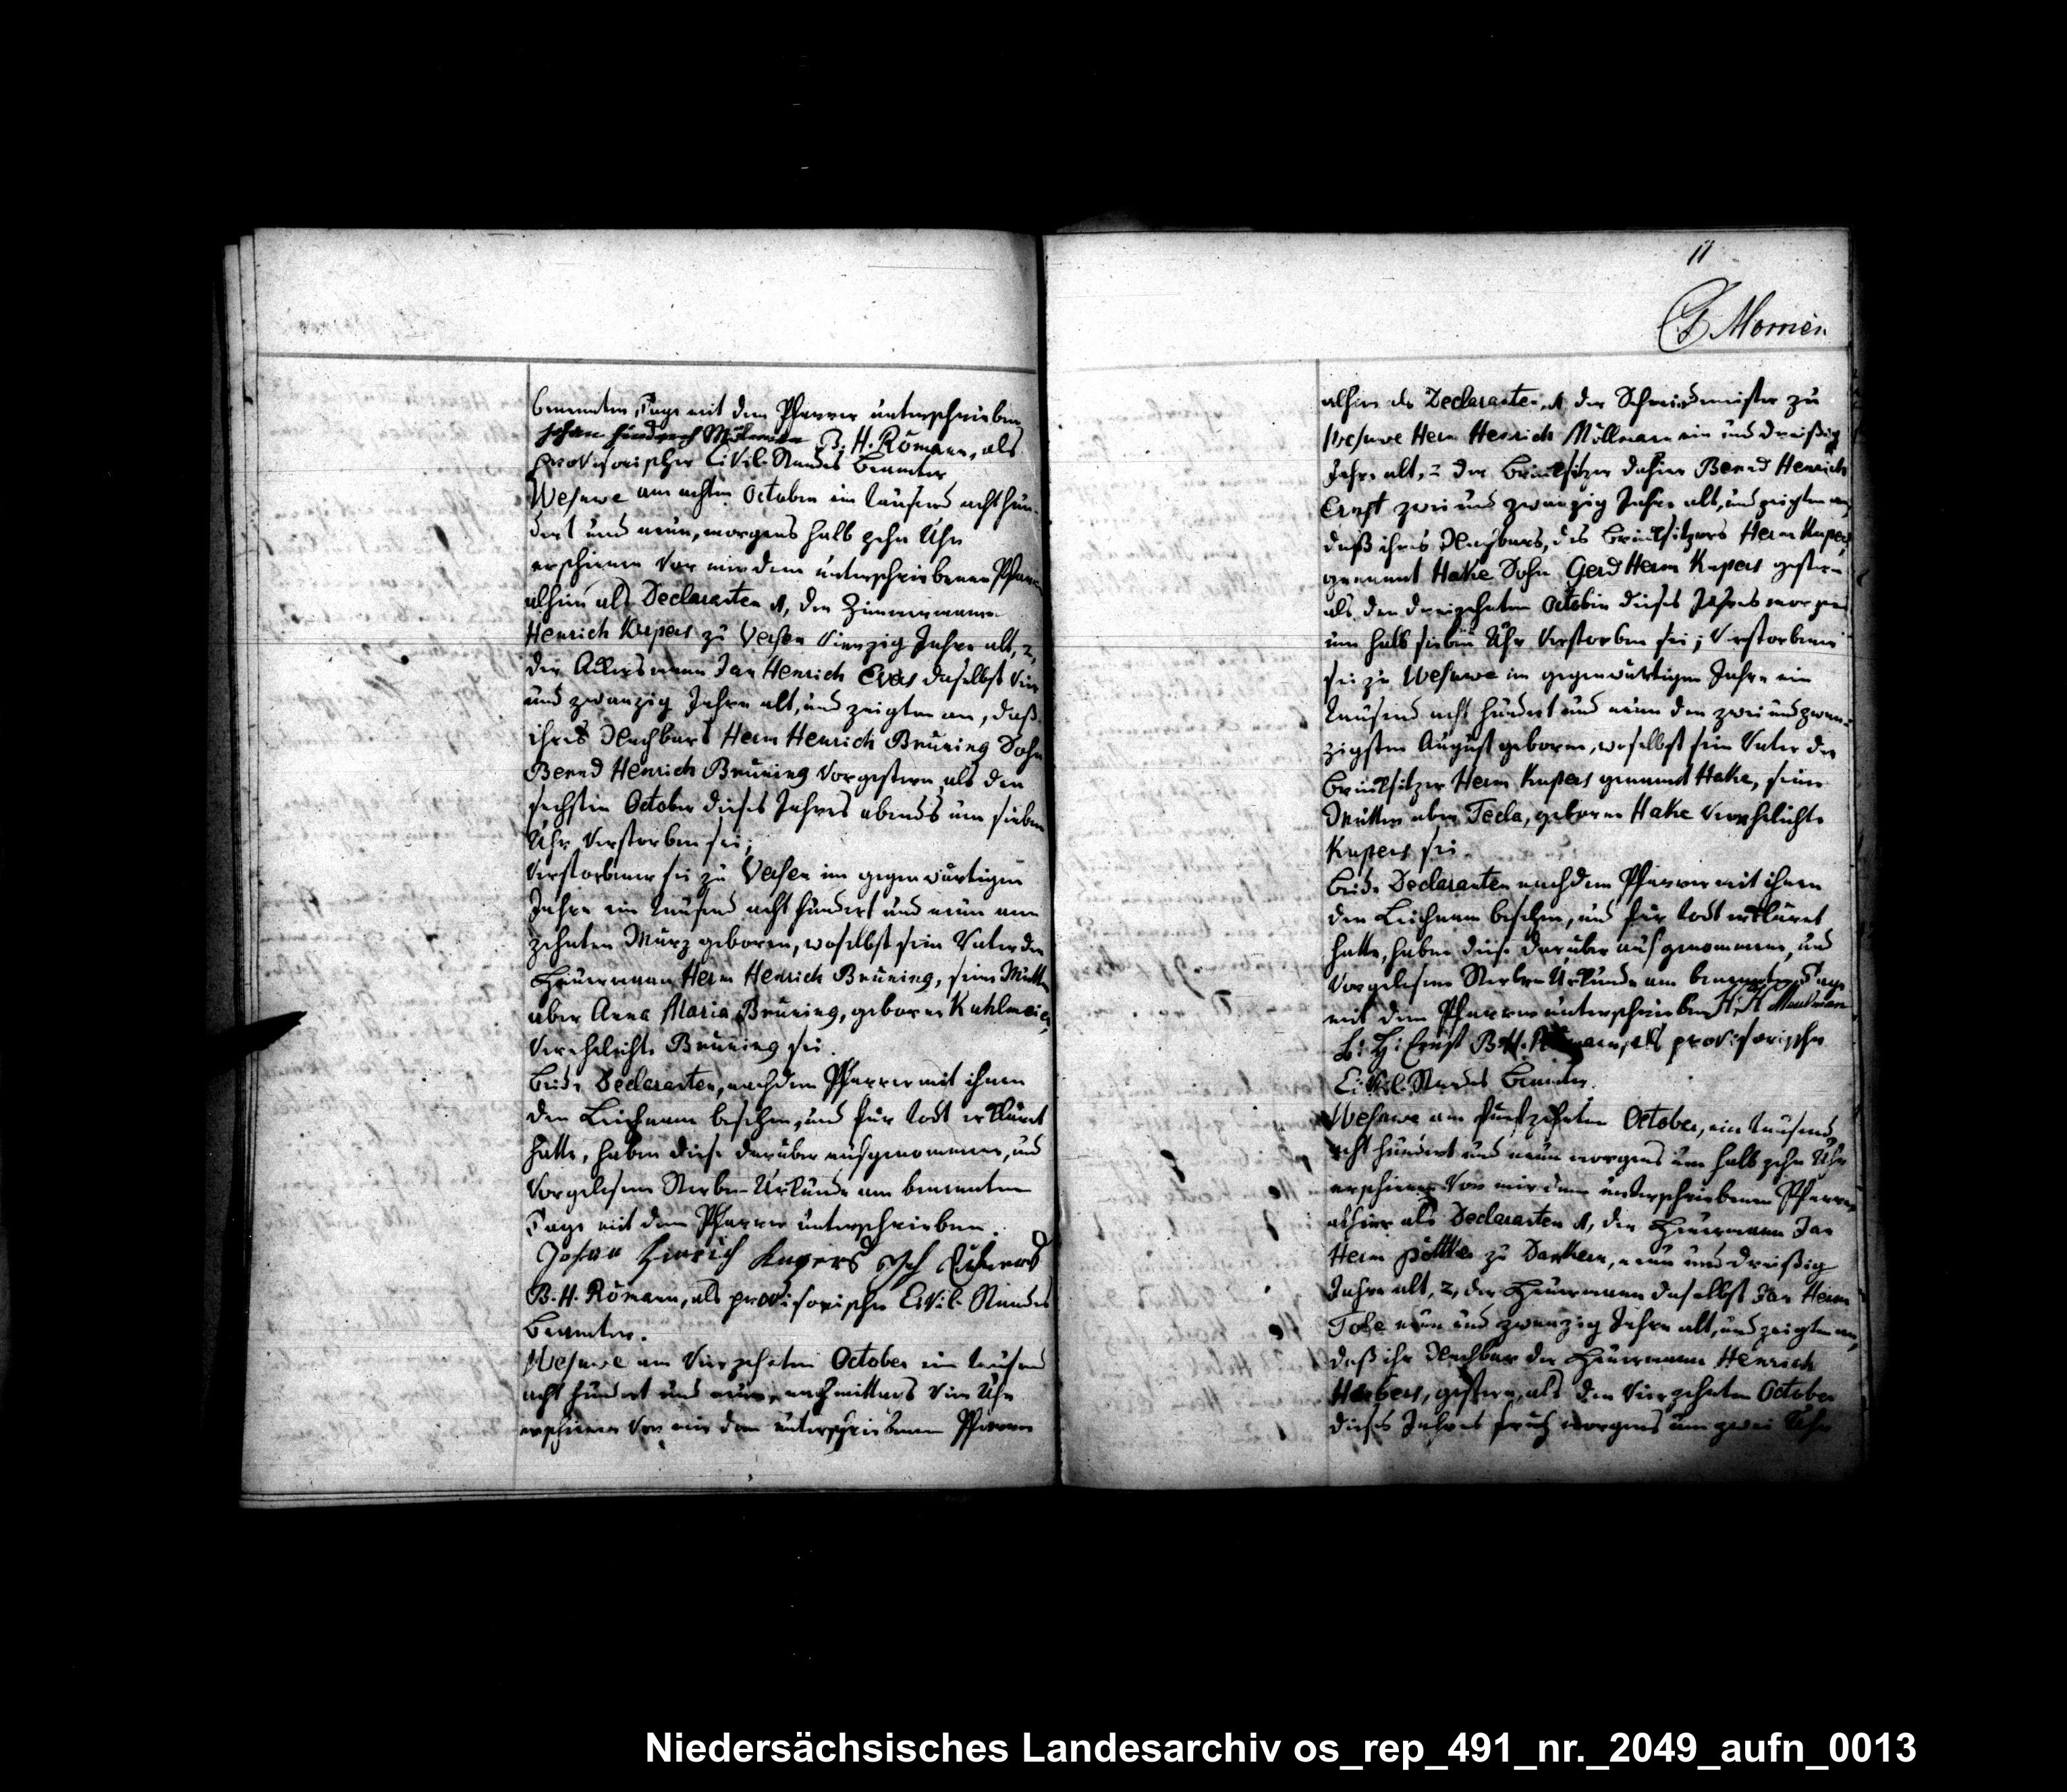 benannten Tage mit dem Pfarrer unterschrieben
Johan Hindrich B. H. Römann, als
provisorischer Civil-Standes Beamter
Wesuwe am achten October ein tausend acht hun-
dert und neun, morgens halb zehn Uhr
erschienen vor mir dem unterschriebenen Pfarrer
alhier als Declaranten 1, der Zimmermann
Henrich Kupers zu Versen vierzig Jahre alt, 2,
der Ackersmann Jan Henrich Evers daselbst vier
und zwanzig Jahre alt, und zeigten an, daß
ihres Nachbars Herm Henrich Bruning Sohn
Bernd Henrich Bruning vorgestern, als den
sechsten October dieses Jahres abends um sieben
Uhr verstorben sei;
Verstorbener sei zu Versen im gegenwärtigen
Jahre ein tausend acht hundert und neun am
zehnten März geboren, woselbst sein Vater der
Heuermann Herm Henrich Bruning, seine Mutter
aber Anna Maria Bruning, geborne Kuhlmeier,
verehelichte Bruning sei.
Beide Declaranten, nachdem Pfarrer mit ihnen
den Leichnam besehen, und für todt erkläret
hatte, haben diese darüber aufgenommene, und
vorgelesene Sterbe-Urkunde am benannten
Tage mit dem Pfarrer unterschrieben.
Johan Hinrich Kupers
B. H. Römann, als provisorischer Civil-Standes
Beamter.
Wesuwe am vierzehnten October ein tausend
acht hundert und neun, nachmittags vier Uhr
erschienen vor mir dem unterschriebenen Pfarrer
11
Morrien
alhier als Declaranten, 1 der Schmiedmeister zu
Wesuwe Herm Henrich Möllmann ein und dreißig
Jahre alt, 2 der Brinksitzer dahier Bernd Henrich
Ernst zwei und zwanzig Jahre alt, und zeigten an,
daß ihres Nachbars, des Brinksitzers Herm Kupers
genannt Hake Sohn Gerd Herm Kupers gestern
als den dreizehnten October dieses Jahres morgens
um halb sieben Uhr verstorben sei; Verstorbener
sei zu Wesuwe im gegenwärtigen Jahre ein
tausend acht hundert und neun den zwei und zwan-
zigsten August geboren, woselbst sein Vater der
Brinksitzer Herm Kupers genannt Hake, seine
Mutter aber Tecla, geborne Hake verehelichte
Kupers sei.
Beide Declaranten nachdem Pfarrer mit ihnen
den Leichnam besehen, und für todt erkläret
hatte, haben diese darüber aufgenommene, und
vorgelesene Sterbe-Urkunde am benannten Tage
mit dem Pfarrer unterschrieben H. H.
B: H: Ernst B. H. Römann, als provisorischer
Civil-Standes Beamter.
Wesuwe am fünfzehnten October, ein tausend
acht hundert und neun morgens um halb zehn Uhr
erschienen vor mir dem unterschriebenen Pfarrer
alhier als Declaranten 1, der Heuermann Jan
Herm Pöttker zu Dankern, neun und dreißig
Jahre alt, 2, der Heuermann daselbst Jan Herm
neun und zwanzig Jahre alt, und zeigten an,
daß ihr Nachbar der Heuermann Henrich
Harbers, gestern, als den vierzehnten October
dieses Jahres früh morgens um zwei Uhr
Niedersächsisches Landesarchiv os_rep_491_nr._2049_aufn_0013